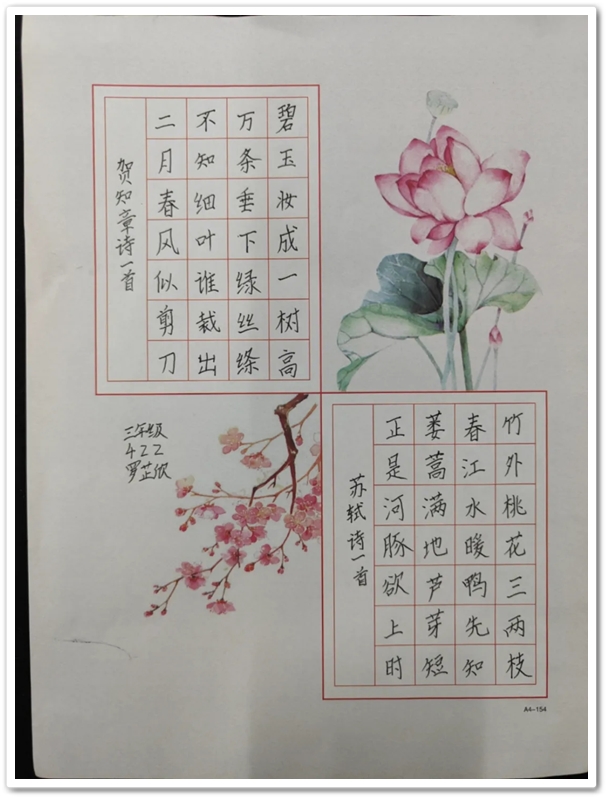 碧玉妆成一树高
万条垂下绿丝绦
不知细叶谁裁出
二月春风似剪刀
贺知章诗一首
竹外桃花三两枝
春江水暖鸭先知
蒌蒿满地芦芽短
正是河豚欲上时
苏轼诗一首
三年级
422
罗芷欣
A4-154